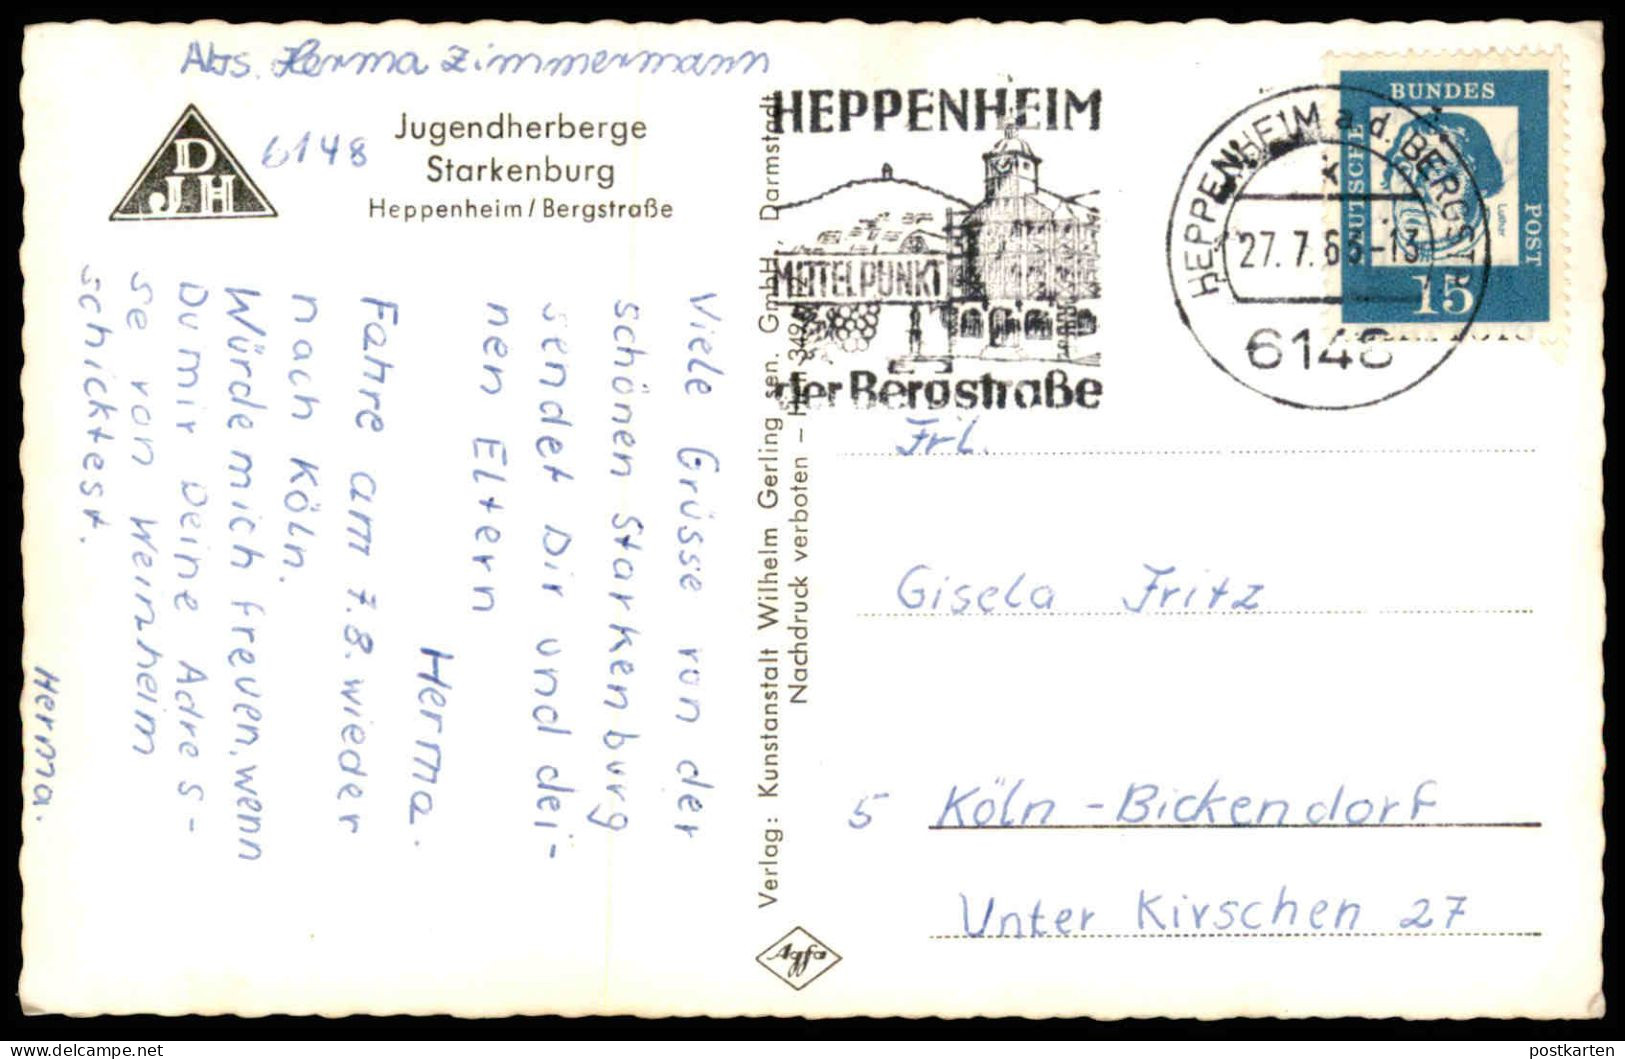 Abs. Herma Zimmermann
6148
DJH
Jugendherberge
Starkenburg
Heppenheim/Bergstraße
Viele Grüsse von der
schönen Starkenburg
sendet Dir und dei-
nen Eltern
Herma.
Fahre am 7.8. wieder
nach Köln.
Würde mich freuen, wenn
Du mir Deine Adres-
se von Weinheim
schicktest.
Herma.
Verlag: Kunstanstalt Wilhelm Gerling sen. GmbH., Darmstadt
Nachdruck verboten –
Agfa
HEPPENHEIM
MITTELPUNKT
der Bergstraße
HEPPENHEIM a. d. BERGSTR
27.7.63-13
6148
DEUTSCHE
BUNDES
POST
Luther
15
Frl.
Gisela Fritz
5 Köln-Bickendorf
Unter Kirschen 27
postkarten